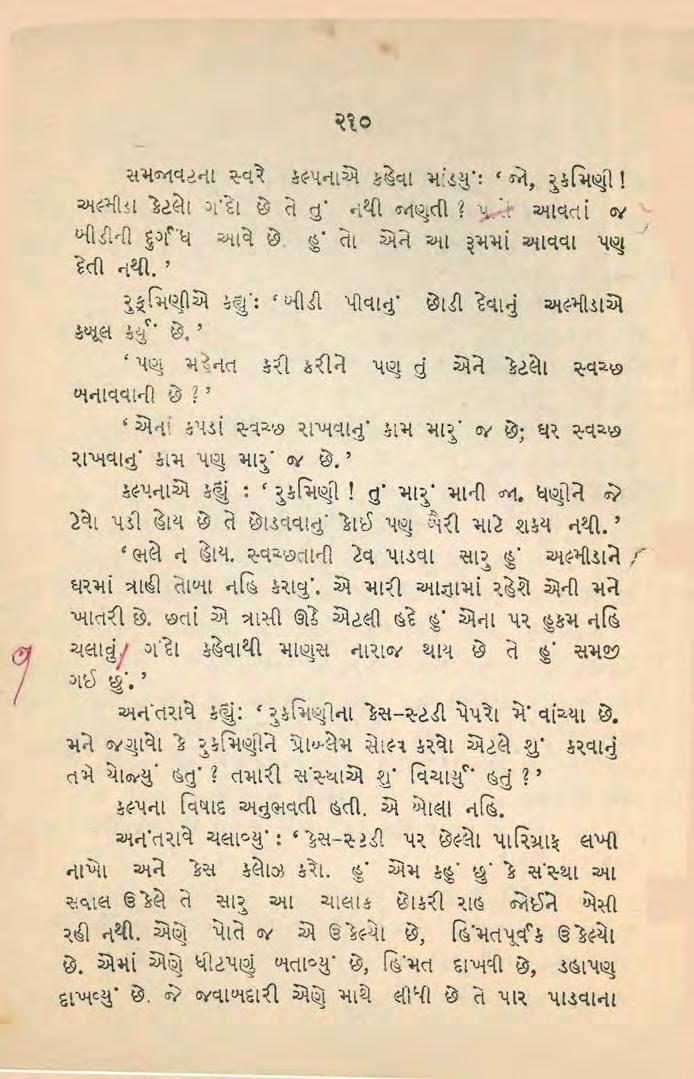 ૨૧૦
સમજાવટના સ્વરે કલ્પનાએ કહેવા માંડ્યું: ‘ જો, રુકમિણી !
અલ્મીડા કેટલો ગંદો છે તે તું નથી જાણતી ? આવતાં જ
બીડીની દુર્ગંધ આવે છે. હું તો એને આ રૂમમાં આવવા પણ
દેતી નથી. ’
રુકૂમિણીએ કહ્યું: ‘ બીડી પીવાનું છોડી દેવાનું અલ્મીડાએ
કબૂલ કર્યું છે. ’
‘ પણ મહેનત કરી કરીને પણ તું એને કેટલો સ્વચ્છ
બનાવવાની છે ? ’
‘ એનાં કપડાં સ્વચ્છ રાખવાનું કામ મારું જ છે; ઘર સ્વચ્છ
રાખવાનું કામ પણ મારું જ છે. ’
કલ્પનાએ કહ્યું : ‘ રુકમિણી ! તું મારું માની જા. ધણીને જે
ટેવો પડી હોય છે તે છોડવવાનું કોઈ પણ બૈરી માટે શકય નથી. ’
‘ ભલે ન હોય. સ્વચ્છતાની ટેવ પાડવા સારુ હું અલ્મીડાને
ઘરમાં ત્રાહી તોબા નહિ કરાવું. એ મારી આજ્ઞામાં રહેશે એની મને
ખાતરી છે. છતાં એ ત્રાસી ઊઠે એટલી હદે હું એના પર હુકમ નહિ
ચલાવું, ગંદો કહેવાથી માણસ નારાજ થાય છે તે હું સમજી
ગઈ છું. ’
અનંતરાવે કહ્યું: ‘ રુકમિણીના કેસ-સ્ટડી પેપરો મેં વાંચ્યા છે.
મને જણાવો કે રુકમિણીને પ્રોબ્લેમ સોલ્વ કરવો એટલે શું કરવાનું
તમે યોજ્યું હતું ? તમારી સંસ્થાએ શું વિચાર્યું હતું ? ’
કલ્પના વિષાદ અનુભવતી હતી. એ બોલા નહિ.
અનંતરાવે ચલાવ્યું : ‘ કેસ-સ્ટડી પર છેલ્લો પારિગ્રાફ લખી
નાખો અને કેસ કલોઝ કરો. હું એમ કહું છું કે સંસ્થા આ
સવાલ ઉકેલે તે સારુ આ ચાલાક છોકરી રાહ જોઈને બેસી
રહી નથી. એણે પોતે જ એ ઉકેલ્યો છે, હિંમતપૂર્વક ઉકેલ્યો
છે. એમાં એણે ધીટપણું બતાવ્યું છે, હિંમત દાખવી છે, ડહાપણ
દાખવ્યું છે. જે જવાબદારી એણે માથે લીધી છે તે પાર પાડવાના